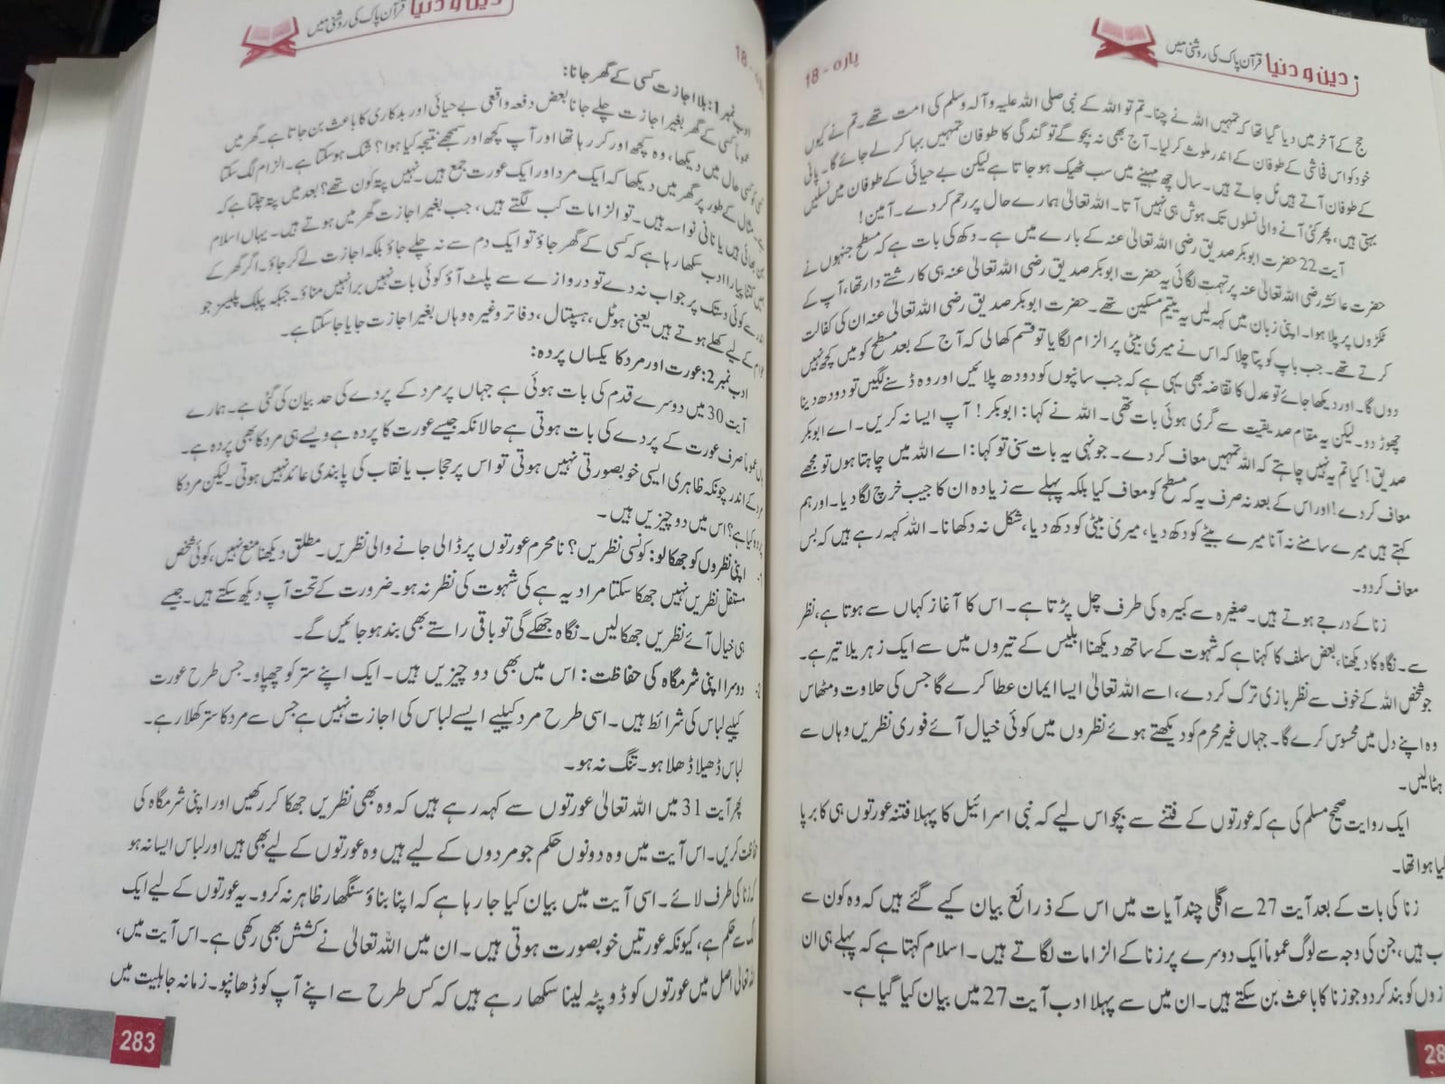 دین و دنیا قرآن پاک کی روشنی میں
پارہ - 18
حج کے آخر میں دیا گیا تھا کہ تمہیں اللہ نے چنا۔ تم تو اللہ کے نبی صلی اللہ علیہ و آلہ وسلم کی امت تھے۔ تم نے کیوں
خود کو اس فحاشی کے طوفان کے اندر ملوث کر لیا۔ آج بھی نہ بچو گے تو گندگی کا طوفان تمہیں بہا کر لے جائے گا۔ پانی
کے طوفان آتے ہیں ٹل جاتے ہیں۔ سال چھ مہینے میں سب ٹھیک ہو جاتا ہے لیکن بے حیائی کے طوفان میں نسلیں
بہتی ہیں، پھر کئی آنے والی نسلوں تک ہوش ہی نہیں آتا۔ اللہ تعالیٰ ہمارے حال پر رحم کر دے۔ آمین!
آیت 22 حضرت ابوبکر صدیق رضی اللہ تعالیٰ عنہ کے بارے میں ہے۔ دکھ کی بات ہے کہ مسطح جنہوں نے
حضرت عائشہ رضی اللہ تعالیٰ عنہ پر تہمت لگائی یہ حضرت ابوبکر صدیق رضی اللہ تعالیٰ عنہ ہی کا رشتے دار تھا، آپ کے
ٹکڑوں پر پلا ہوا۔ اپنی زبان میں کہہ لیں یہ یتیم مسکین تھے۔ حضرت ابوبکر صدیق رضی اللہ تعالیٰ عنہ ان کی کفالت
کرتے تھے۔ جب باپ کو پتا چلا کہ اس نے میری بیٹی پر الزام لگایا تو قسم کھالی کہ آج کے بعد مسطح کو میں کچھ نہیں
دوں گا۔ اور دیکھا جائے تو عدل کا تقاضہ بھی یہی ہے کہ جب سانپوں کو دودھ پلائیں اور وہ ڈسنے لگیں تو دودھ دینا
چھوڑ دو۔ لیکن یہ مقام صدیقیت سے گری ہوئی بات تھی۔ اللہ نے کہا: ابوبکر! آپ ایسا نہ کریں۔ اے ابوبکر
صدیق! کیا تم یہ نہیں چاہتے کہ اللہ تمہیں معاف کر دے۔ جونہی یہ بات سنی تو کہا: اے اللہ میں چاہتا ہوں تو مجھے
معاف کر دے! اور اس کے بعد نہ صرف یہ کہ مسطح کو معاف کیا بلکہ پہلے سے زیادہ ان کا جیب خرچ لگا دیا۔ اور ہم
کہتے ہیں میرے سامنے نہ آنا میرے بیٹے کو دکھ دیا، میری بیٹی کو دکھ دیا، شکل نہ دکھانا۔ اللہ کہہ رہے ہیں کہ بس
معاف کر دو۔
زنا کے درجے ہوتے ہیں۔ صغیرہ سے کبیرہ کی طرف چل پڑتا ہے۔ اس کا آغاز کہاں سے ہوتا ہے، نظر
سے۔ نگاہ کا دیکھنا، بعض سلف کا کہنا ہے کہ شہوت کے ساتھ دیکھنا ابلیس کے تیروں میں سے ایک زہریلا تیر ہے۔
جو شخص اللہ کے خوف سے نظر بازی ترک کر دے، اسے اللہ تعالیٰ ایسا ایمان عطا کرے گا جس کی حلاوت و مٹھاس
وہ اپنے دل میں محسوس کرے گا۔ جہاں غیر محرم کو دیکھتے ہوئے نظروں میں کوئی خیال آئے فوری نظریں وہاں سے
ہٹا لیں۔
ایک روایت صحیح مسلم کی ہے کہ عورتوں کے فتنے سے بچو اس لیے کہ بنی اسرائیل کا پہلا فتنہ عورتوں ہی کا برپا
کیا ہوا تھا۔
زنا کی بات کے بعد آیت 27 سے اگلی چند آیات میں اس کے ذرائع بیان کیے گئے ہیں کہ وہ کون سے
ہیں، جن کی وجہ سے لوگ عموماً ایک دوسرے پر زنا کے الزامات لگاتے ہیں۔ اسلام کہتا ہے کہ پہلے ہی ان
کو بند کر دو جو زنا کا باعث بن سکتے ہیں۔ ان میں سے پہلا ادب آیت 27 میں بیان کیا گیا ہے۔
28
دین و دنیا قرآن پاک کی روشنی میں
18
ادب نمبر 1: بلا اجازت کسی کے گھر جانا:
عموماً کسی کے گھر بغیر اجازت چلے جانا بعض دفعہ واقعی بے حیائی اور بدکاری کا باعث بن جاتا ہے۔ گھر میں
کسی حال میں دیکھا، وہ کچھ اور کر رہا تھا اور آپ کچھ اور سمجھے نتیجہ کیا ہوا؟ شک ہو سکتا ہے۔ الزام لگ سکتا
ہے۔ مثال کے طور پر گھر میں دیکھا کہ ایک مرد اور ایک عورت جمع ہیں۔ نہیں پتہ کون تھے؟ بعد میں پتہ چلتا ہے کہ
بھائی ہیں یا نانی نواسہ ہیں۔ تو الزامات کب لگتے ہیں، جب بغیر اجازت گھر میں ہوتے ہیں۔ یہاں اسلام
ہمیں کتنا پیارا ادب سکھا رہا ہے کہ کسی کے گھر جاؤ تو ایک دم سے نہ چلے جاؤ بلکہ اجازت لے کر جاؤ۔ اگر گھر کے
اندر سے کوئی دستک پر جواب نہ دے تو دروازے سے پلٹ آؤ کوئی بات نہیں برا نہیں مناؤ۔ جبکہ پبلک پلیسز جو
عوام کے لیے کھلے ہوتے ہیں یعنی ہوٹل، ہسپتال، دفاتر وغیرہ وہاں بغیر اجازت جایا جا سکتا ہے۔
ادب نمبر 2: عورت اور مرد کا یکساں پردہ:
آیت 30 میں دوسرے قدم کی بات ہوئی ہے جہاں پر مرد کے پردے کی حد بیان کی گئی ہے۔ ہمارے
ہاں عموماً صرف عورت کے پردے کی بات ہوتی ہے حالانکہ جیسے عورت کا پردہ ہے ویسے ہی مرد کا بھی پردہ ہے۔
مرد کے اندر چونکہ ظاہری ایسی خوبصورتی نہیں ہوتی تو اس پر حجاب یا نقاب کی پابندی عائد نہیں ہوتی۔ لیکن مرد کا
پردہ کیا ہے؟ اس میں دو چیزیں ہیں۔
اپنی نظروں کو جھکا لو: کونسی نظریں؟ نامحرم عورتوں پر ڈالی جانے والی نظریں۔ مطلق دیکھنا منع نہیں، کوئی شخص
مستقل نظریں نہیں جھکا سکتا مراد یہ ہے کی شہوت کی نظر نہ ہو۔ ضرورت کے تحت آپ دیکھ سکتے ہیں۔ جیسے
ہی خیال آئے نظریں جھکا لیں۔ نگاہ جھکے گی تو باقی راستے بھی بند ہو جائیں گے۔
دوسرا اپنی شرمگاہ کی حفاظت: اس میں بھی دو چیزیں ہیں۔ ایک اپنے ستر کو چھپاو۔ جس طرح عورت
کیلیے لباس کی شرائط ہیں۔ اسی طرح مرد کیلیے ایسے لباس کی اجازت نہیں ہے جس سے مرد کا ستر کھلا رہے۔
لباس ڈھیلا ڈھلا ہو۔ تنگ نہ ہو۔
پھر آیت 31 میں اللہ تعالیٰ عورتوں سے کہہ رہے ہیں کہ وہ بھی نظریں جھکا کر رکھیں اور اپنی شرمگاہ کی
حفاظت کریں۔ اس آیت میں وہ دونوں حکم جو مردوں کے لیے ہیں وہ عورتوں کے لیے بھی ہیں اور لباس ایسا نہ ہو
کہ زنا کی طرف لائے۔ اسی آیت میں بیان کیا جا رہا ہے کہ اپنا بناؤ سنگھار ظاہر نہ کرو۔ یہ عورتوں کے لیے ایک
حکم ہے، کیونکہ عورتیں خوبصورت ہوتی ہیں۔ ان میں اللہ تعالیٰ نے کشش بھی رکھی ہے۔ اس آیت میں،
اللہ تعالیٰ اصل میں عورتوں کو ڈوپٹہ لینا سکھا رہے ہیں کہ کس طرح سے اپنے آپ کو ڈھانپو۔ زمانہ جاہلیت میں
283